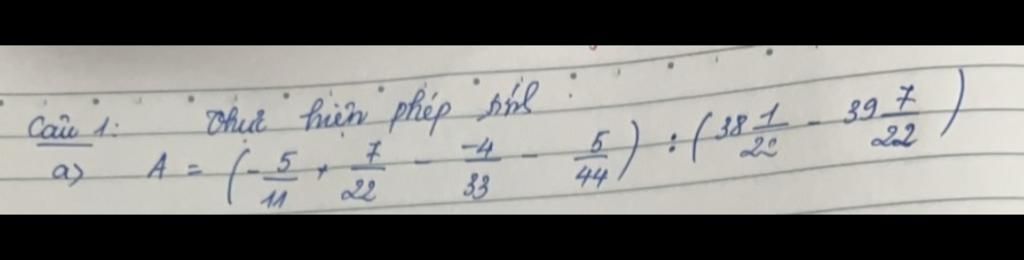 Câu 1: Thực hiện phép tính.
a) A = (-5/11 + 7/22 - -4/33 - 5/44) : (38 1/22 - 39 7/22)